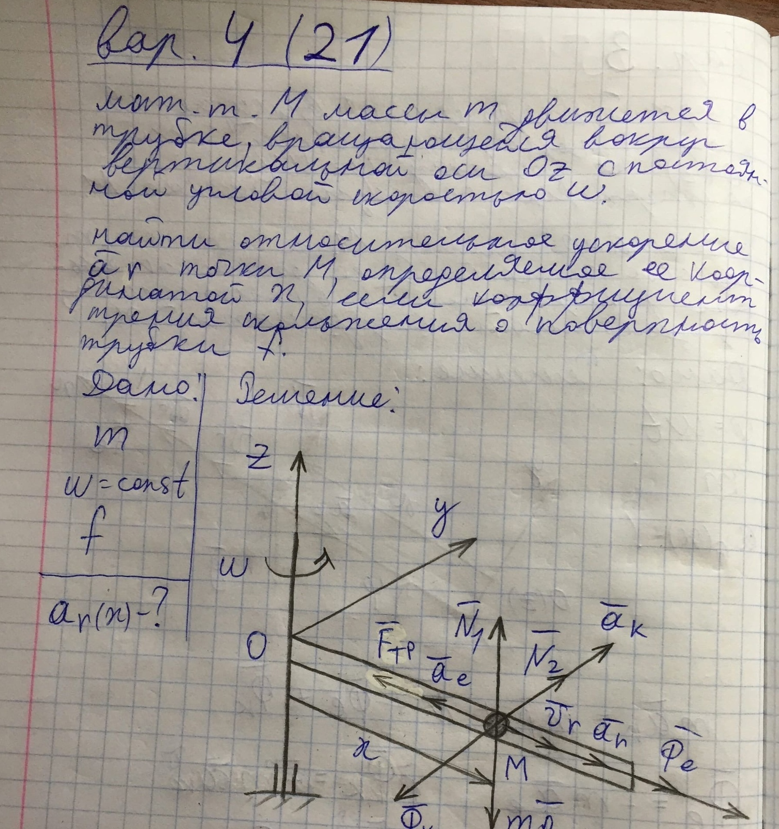 вар. 4 (21)
мат. т. M массы m движется в
трубке, вращающейся вокруг
вертикальной оси Oz с постоян-
ной угловой скоростью ω.
найти относительное ускорение
a̅r точки M, определяемое ее коор-
динатой x, если коэффициент
трения скольжения о поверхность
трубки f.
Дано: Решение:
m
ω = const
f
ar(x) - ?
z
y
ω
O
F̅тр
a̅e
N̅1
N̅2
a̅к
v̅r
a̅r
Φ̅e
x
M
Φ̅к
mg̅